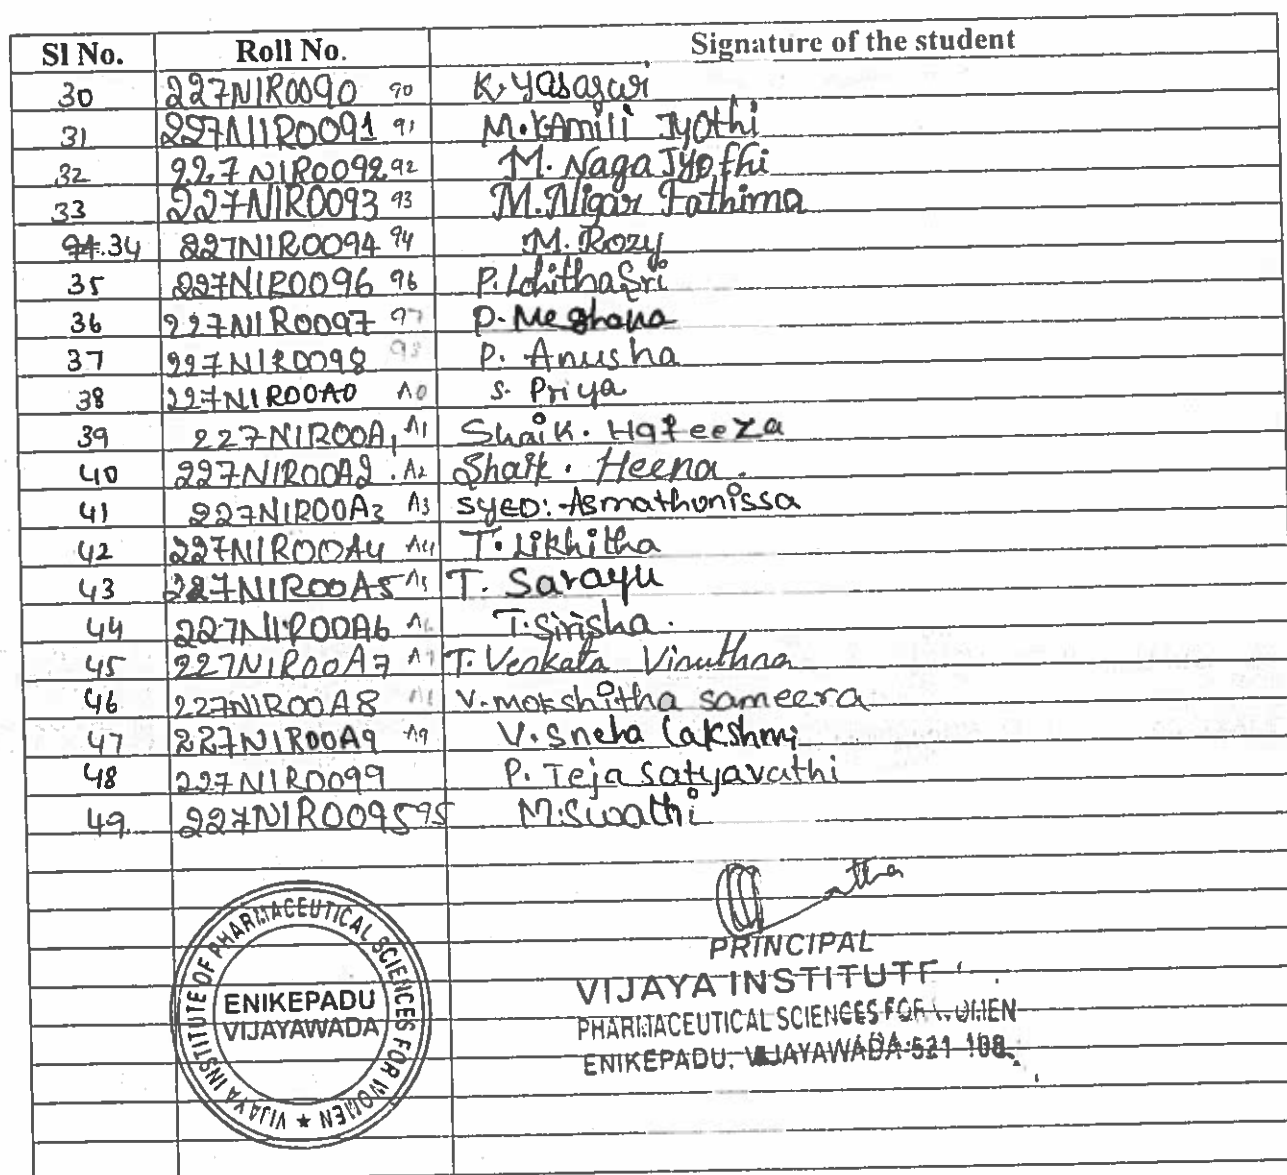 Sl No. Roll No. Signature of the student
30 227N1R0090 90 K. Yasaswi
31 227N1R0091 91 M. kAmili Jyothi
32 227N1R0092 92 M. Naga Jyothi
33 227N1R0093 93 M. Nigar Fathima
34 227N1R0094 94 M. Rozy
35 227N1R0096 96 P. LohithaSri
36 227N1R0097 97 P. Meghana
37 227N1R0098 98 P. Anusha
38 227N1R00A0 A0 S. Priya
39 227N1R00A1 A1 Shaik. Hafeeza
40 227N1R00A2. A2 Shaik. Heena.
41 227N1R00A3 A3 SYED. Asmathunissa
42 227N1R00A4 A4 T. Likhitha
43 227N1R00A5 A5 T. Sarayu
44 227N1R00A6 A6 T. Sirisha.
45 227N1R00A7 A7 T. Venkata Vinuthna
46 227N1R00A8 A8 V. mokshitha sameera
47 227N1R00A9 A9 V. Sneha Lakshmi
48 227N1R0099 P. Teja Satyavathi
49 227N1R0095 95 M. Swathi
VIJAYA INSTITUTE OF PHARMACEUTICAL SCIENCES FOR WOMEN ★
ENIKEPADU
VIJAYAWADA
PRINCIPAL
VIJAYA INSTITUTE
PHARMACEUTICAL SCIENCES FOR WOMEN
ENIKEPADU, VIJAYAWADA-521 108.